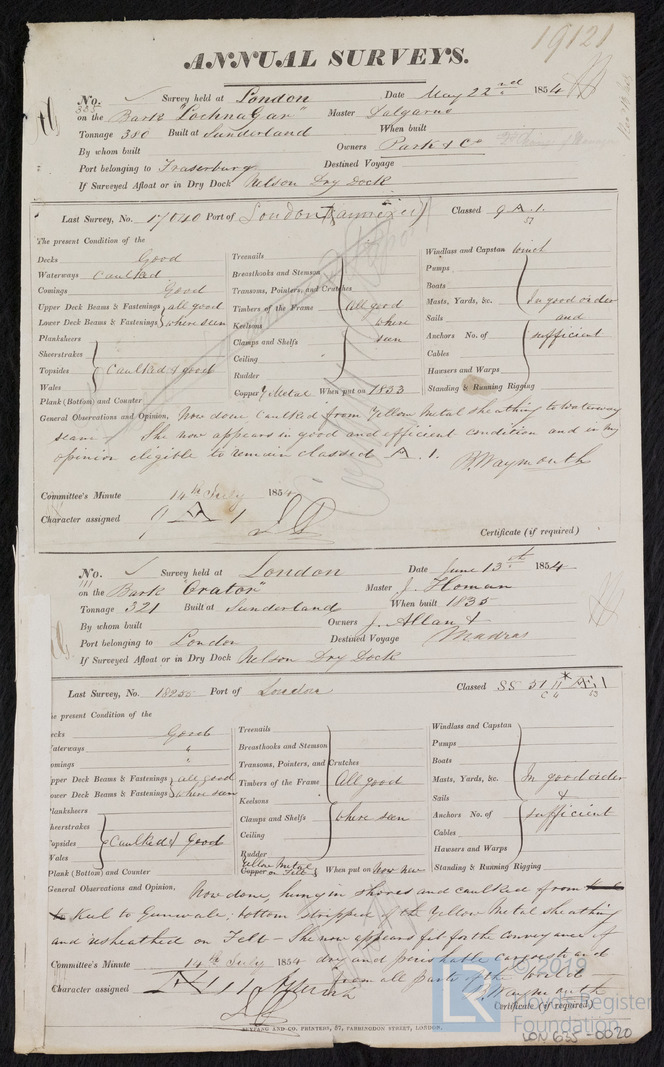 19121
ANNUAL SURVEYS.
No. 385 Survey held at London Date May 22nd 1854
on the Bark "Lochnagar" Master Dalgarno
Tonnage 380 Built at Sunderland When built
By whom built Owners Park & Co
Port belonging to Fraserburg Destined Voyage
If Surveyed Afloat or in Dry Dock Nelson Dry Dock
Last Survey, No. 17040 Port of London (annexed) Classed 9 A. 1. 53
The present Condition of the
Decks Good
Waterways Caulked
Comings Good
Upper Deck Beams & Fastenings all good
Lower Deck Beams & Fastenings where seen
Planksheers
Sheerstrakes
Topsides Caulked & good
Wales
Plank (Bottom) and Counter
Treenails
Breasthooks and Stemson
Transoms, Pointers, and Crutches
Timbers of the Frame All good
Keelsons where
Clamps and Shelfs seen
Ceiling
Rudder
Copper Y Metal When put on 1853
Windlass and Capstan
Pumps
Boats
Masts, Yards, &c. In good order
Sails and
Anchors No. of sufficient
Cables
Hawsers and Warps
Standing & Running Rigging
General Observations and Opinion, Now done Caulked from Yellow Metal sheathing to Waterway
seam - She now appears in good and efficient condition and in my
opinion eligible to remain classed A. 1. B. Waymouth
Committee's Minute 14th July 1854
Character assigned 9 A 1
Certificate (if required)
No. 111 Survey held at London Date June 13th 1854
on the Bark "Orator" Master J. Homan
Tonnage 321 Built at Sunderland When built 1835
By whom built Owners J. Allan &
Port belonging to London Destined Voyage Madras
If Surveyed Afloat or in Dry Dock Nelson Dry Dock
Last Survey, No. 18255 Port of London Classed SS. 51 * Æ 1 53
The present Condition of the
Decks Good
Waterways "
Comings "
Upper Deck Beams & Fastenings all good
Lower Deck Beams & Fastenings where seen
Planksheers
Sheerstrakes
Topsides Caulked & Good
Wales
Plank (Bottom) and Counter
Treenails
Breasthooks and Stemson
Transoms, Pointers, and Crutches
Timbers of the Frame All good
Keelsons
Clamps and Shelfs where seen
Ceiling
Rudder
Yellow Metal
Copper on Felt When put on Now new
Windlass and Capstan
Pumps
Boats
Masts, Yards, &c. In good order
Sails &
Anchors No. of sufficient
Cables
Hawsers and Warps
Standing & Running Rigging
General Observations and Opinion, Now done, hung in shores and caulked from
Keel to Gunwale; bottom stripped of the Yellow Metal sheathing
and resheathed on Felt - She now appears fit for the conveyance of
Committee's Minute 14th July 1854 dry and perishable cargoes to and
Character assigned from all parts of the World
B. Waymouth
Certificate (if required)
AND CO. PRINTERS, 87, FARRINGDON STREET, LONDON.
© 2019
LR
Lloyd's Register
Foundation
LON 635-0020